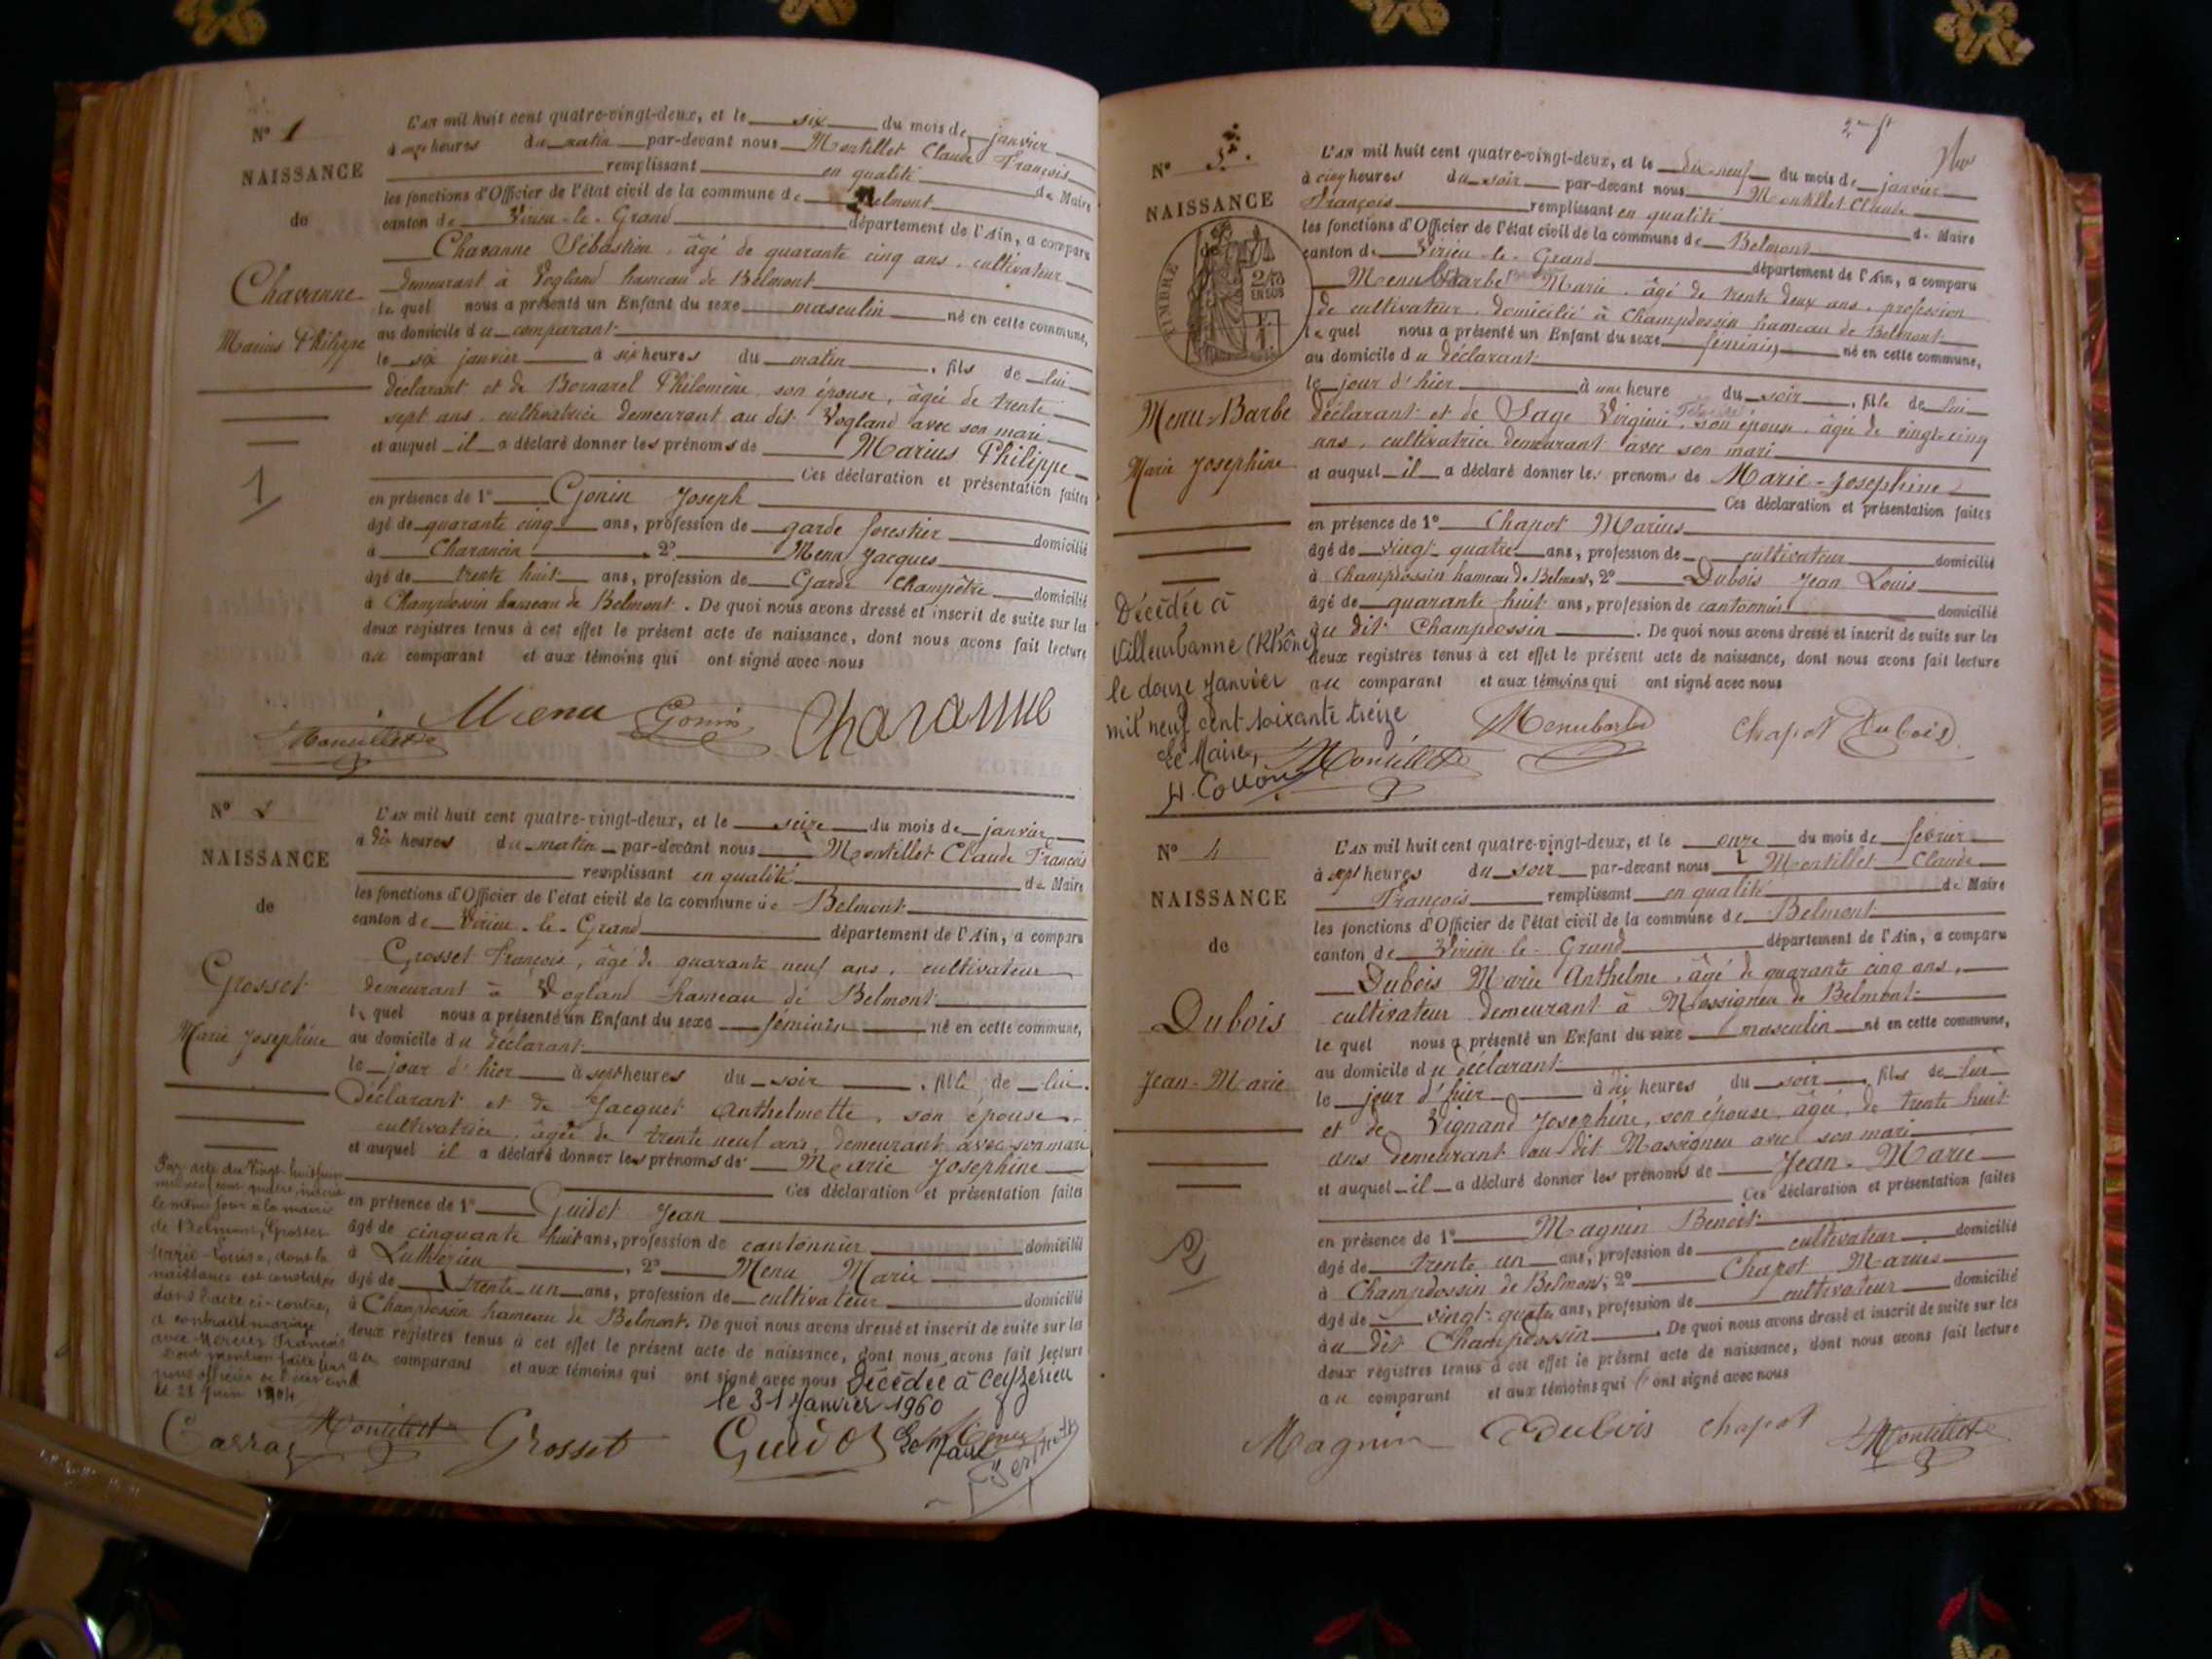 N° 1
NAISSANCE
de
Chavanne
Marius Philippe
1
L'AN mil huit cent quatre-vingt-deux, et le six du mois de janvier
à onze heures du matin par-devant nous Montillet Claude François
remplissant en qualité de Maire
les fonctions d'Officier de l'état civil de la commune de Belmont
canton de Virieu-le-Grand département de l'Ain, a comparu
Chavanne Sébastien, âgé de quarante cinq ans, cultivateur
demeurant à Vogland hameau de Belmont
le quel nous a présenté un Enfant du sexe masculin né en cette commune,
au domicile du comparant
le six janvier à six heures du matin, fils de lui
déclarant et de Bornarel Philomène, son épouse, âgée de trente
sept ans, cultivatrice demeurant au dit Vogland avec son mari
et auquel il a déclaré donner les prénoms de Marius Philippe
Ces déclaration et présentation faites
en présence de 1° Gonin Joseph
âgé de quarante cinq ans, profession de garde forestier domicilié
à Charancin, 2° Menu Jacques
âgé de trente huit ans, profession de Garde Champêtre domicilié
à Champdossin hameau de Belmont. De quoi nous avons dressé et inscrit de suite sur les
deux registres tenus à cet effet le présent acte de naissance, dont nous avons fait lecture
au comparant et aux témoins qui ont signé avec nous
Menu Gonin Chavanne
Montillet
N° 2
NAISSANCE
de
Grosset
Marie Josephine
L'AN mil huit cent quatre-vingt-deux, et le seize du mois de janvier
à dix heures du matin par-devant nous Montillet Claude François
remplissant en qualité de Maire
les fonctions d'Officier de l'état civil de la commune de Belmont
canton de Virieu-le-Grand département de l'Ain, a comparu
Grosset François, âgé de quarante neuf ans, cultivateur
demeurant à Vogland hameau de Belmont
le quel nous a présenté un Enfant du sexe féminin né en cette commune,
au domicile du déclarant
le jour d'hier à sept heures du soir, fille de lui
Déclarant et de Jacquet Anthelmette, son épouse,
cultivatrice, âgée de trente neuf ans, demeurant avec son mari
et auquel il a déclaré donner les prénoms de Marie Josephine
Ces déclaration et présentation faites
en présence de 1° Guidot Jean
âgé de cinquante huit ans, profession de cantonnier domicilié
à Luthézieu, 2° Menu Marie
âgé de trente un ans, profession de cultivateur domicilié
à Champdossin hameau de Belmont. De quoi nous avons dressé et inscrit de suite sur les
deux registres tenus à cet effet le présent acte de naissance, dont nous avons fait lecture
au comparant et aux témoins qui ont signé avec nous
Décédée à Ceyzerieu
le 31 Janvier 1960
Le Maire
Par acte du vingt huit juin
mil neuf cent quatre, inscrit
le même jour à la mairie
de Belmont, Grosset
Marie-Louise, dont la
naissance est constatée
dans l'acte ci-contre,
a contracté mariage
avec Mercier François
Dont mention faite par
nous officier de l'état civil
le 28 Juin 1904
Carraz Montillet Grosset Guidot Menu
2me ft
N° 3
NAISSANCE
de
TIMBRE
2/10
EN SUS
Menu-Barbe
Marie Josephine
Décédée à
Villeurbanne (Rhône)
le douze Janvier
mil neuf cent soixante treize
Le Maire,
L'AN mil huit cent quatre-vingt-deux, et le dix-neuf du mois de janvier
à cinq heures du soir par-devant nous Montillet Claude
François remplissant en qualité de Maire
les fonctions d'Officier de l'état civil de la commune de Belmont
canton de Virieu-le-Grand département de l'Ain, a comparu
Menu Barbe Marie, âgé de trente deux ans, profession
de cultivateur, domicilié à Champdossin hameau de Belmont
le quel nous a présenté un Enfant du sexe féminin né en cette commune,
au domicile du déclarant
le jour d'hier à une heure du soir, fille de lui
déclarant et de Sage Virginie, son épouse, âgée de vingt-cinq
ans, cultivatrice demeurant avec son mari
et auquel il a déclaré donner les prenoms de Marie-Josephine
Ces déclaration et présentation faites
en présence de 1° Chapot Marius
âgé de vingt-quatre ans, profession de cultivateur domicilié
à Champdossin hameau de Belmont, 2° Dubois Jean Louis
âgé de quarante huit ans, profession de cantonnier domicilié
au dit Champdossin. De quoi nous avons dressé et inscrit de suite sur les
deux registres tenus à cet effet le présent acte de naissance, dont nous avons fait lecture
au comparant et aux témoins qui ont signé avec nous
Menubarbe Chapot Dubois
Montillet
N° 4
NAISSANCE
de
Dubois
Jean-Marie
2
L'AN mil huit cent quatre-vingt-deux, et le onze du mois de février
à sept heures du soir par-devant nous Montillet Claude
François remplissant en qualité de Maire
les fonctions d'Officier de l'état civil de la commune de Belmont
canton de Virieu-le-Grand département de l'Ain, a comparu
Dubois Marie Anthelme, âgé de quarante cinq ans,
cultivateur demeurant à Massigneu de Belmont
le quel nous a présenté un Enfant du sexe masculin né en cette commune,
au domicile du déclarant
le jour d'hier à dix heures du soir, fils de lui
et de Vignand Josephine, son épouse, âgée de trente huit
ans demeurant au dit Massigneu avec son mari
et auquel il a déclaré donner les prénoms de Jean-Marie
Ces déclaration et présentation faites
en présence de 1° Magnin Benoit
âgé de trente un ans, profession de cultivateur domicilié
à Champdossin de Belmont, 2° Chapot Marius
âgé de vingt-quatre ans, profession de cultivateur domicilié
au dit Champdossin. De quoi nous avons dressé et inscrit de suite sur les
deux registres tenus à cet effet le présent acte de naissance, dont nous avons fait lecture
au comparant et aux témoins qui ont signé avec nous
Magnin Dubois Chapot Montillet